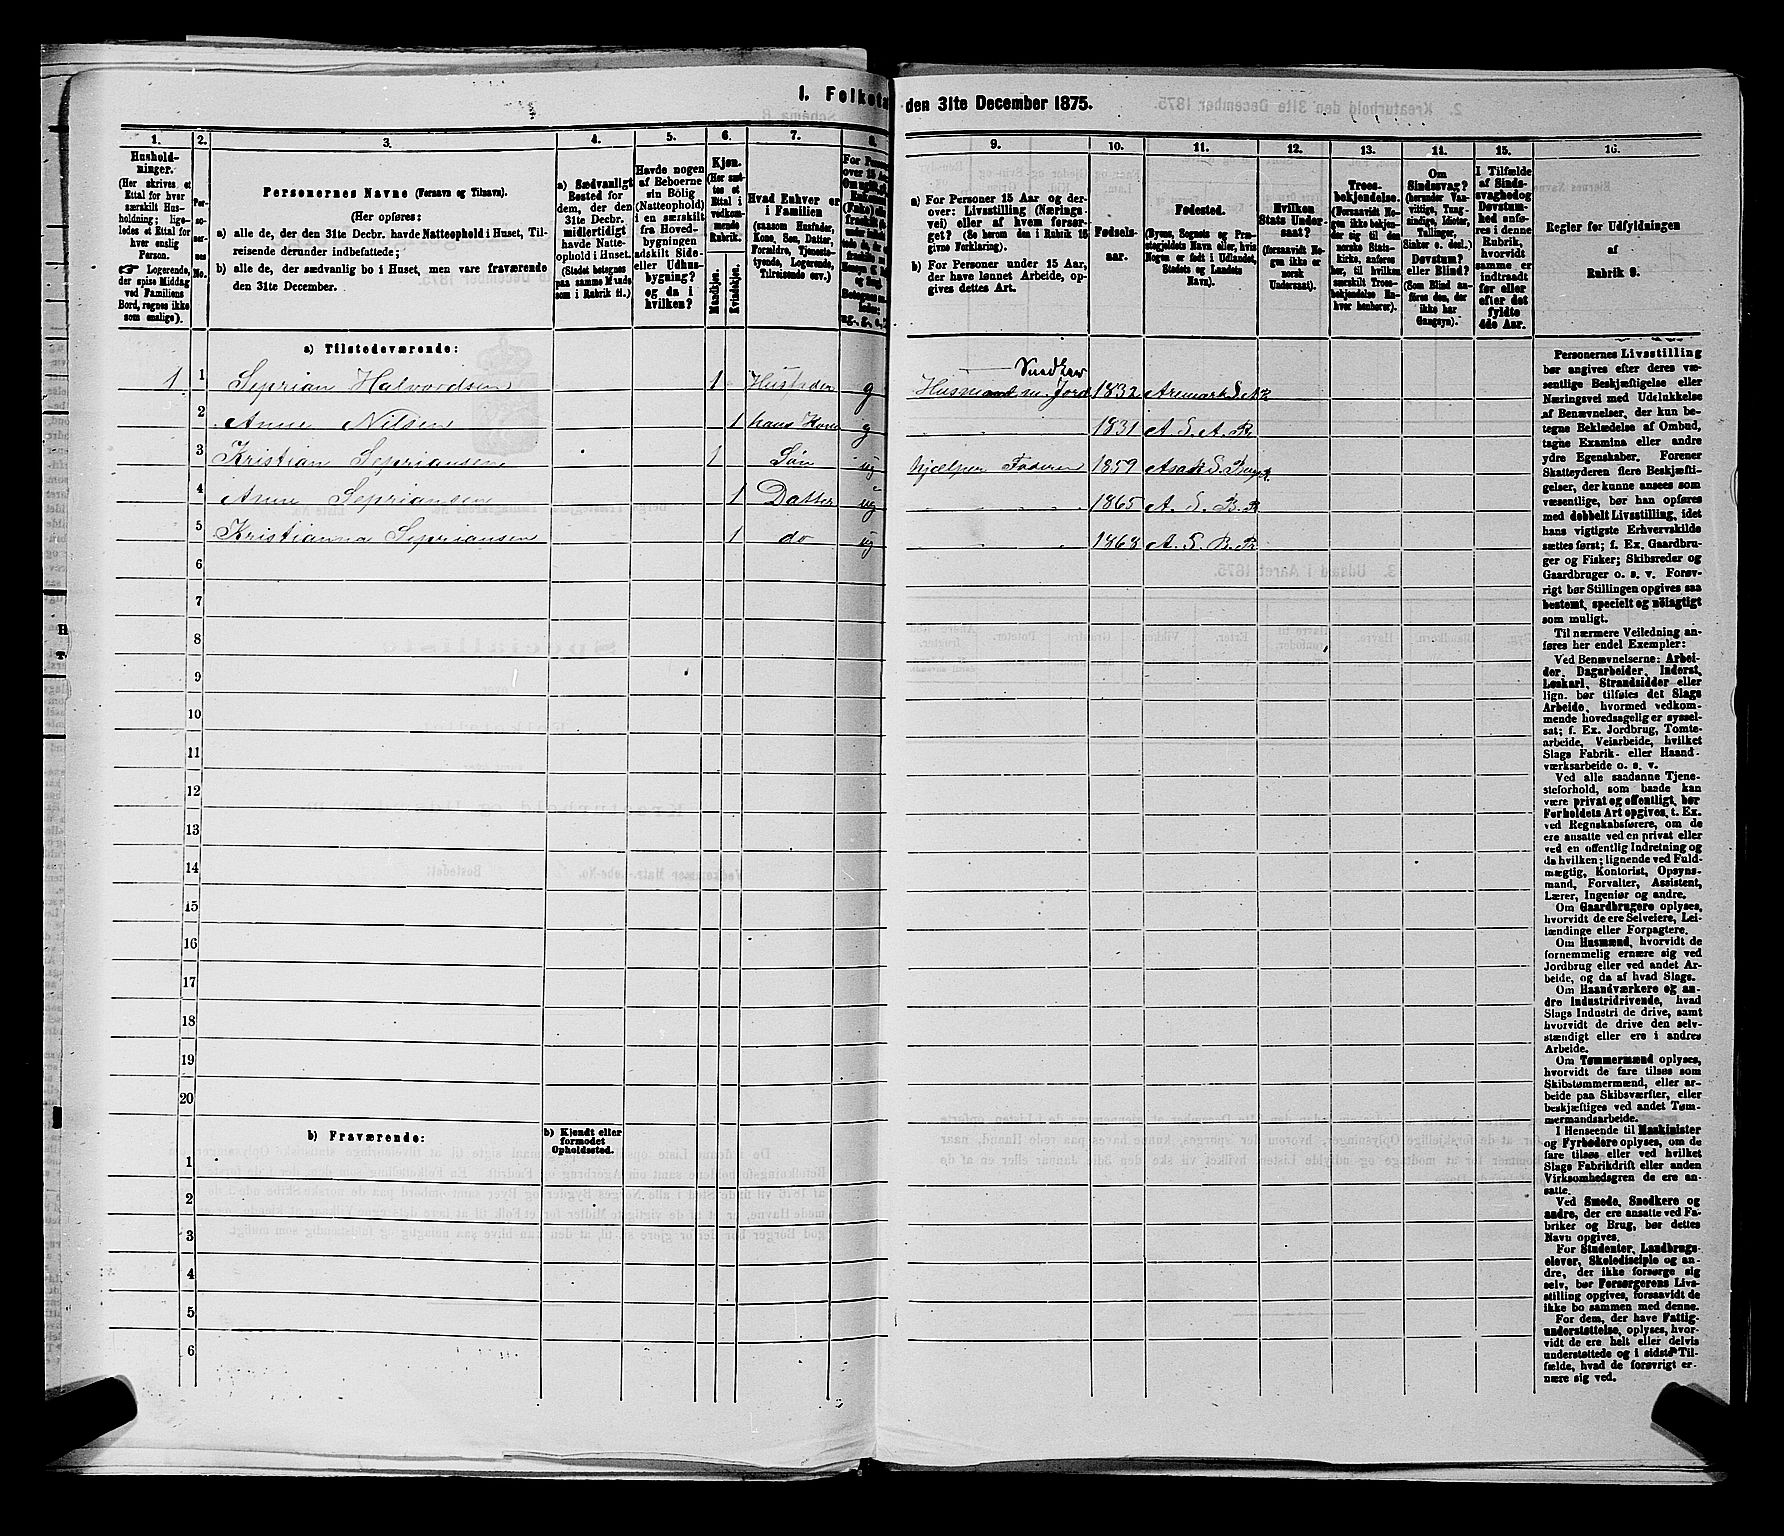 1. Folketæ
den 31te December 1875.
1.
Hushold-
ninger.
(Her skrives et
Ettal for hver
særskilt Hus-
holdning; lige-
ledes et Ettal for
hver enslig
Person.
☞ Logerende,
der spise Middag
ved Familiens
Bord, regnes ikke
som enslige).
2.
Per-
so-
ner-
nes
No.
3.
Personernes Navne (Fornavn og Tilnavn).
(Her opføres:
a) alle de, der den 31te Decbr. havde Natteophold i Huset, Til-
reisende derunder indbefattede;
b) alle de, der sædvanlig bo i Huset, men vare fraværende
den 31te December.
4.
a) Sædvanligt
Bosted for
dem, der den
31te Decbr.
midlertidigt
havde Natte-
ophold i Huset.
(Stedet betegnes
paa samme Maade
som i Rubrik 11.)
5.
Havde nogen
af Beboerne
sin Bolig
(Natteophold)
i en særskilt
fra Hoved-
bygningen
adskilt Side-
eller Udhus-
bygning?
og da i
hvilken?
6.
Kjøn.
(Her sæt-
tes et
Ettal i
vedkom-
mende
Rubrik.
Mandkjøn.
Kvindekjøn.
7.
Hvad Enhver er
i Familien
(saasom Husfader,
Kone, Søn, Datter,
Forældre, Tjeneste-
tyende, Logerende,
Tilreisende osv.)
8.
For Person
over 15 Aa
9.
a) For Personer 15 Aar og der-
over: Livsstilling (Nærings-
vei) eller af hvem forsør-
get? (Se herom den i Rubrik 16
givne Forklaring).
b) For Personer under 15 Aar,
der have lønnet Arbeide, op-
gives dettes Art.
10.
Fødsels-
aar.
11.
Fødested.
(Byens, Sognets og Præ-
stegjeldets Navn eller, hvis
Nogen er født i Udlandet,
Stedets og Landets
Navn).
12.
Hvilken
Stats Under-
saat?
(forsaavidt No-
gen ikke er
norsk
Undersaat).
13.
Troes-
bekjendelse.
(Forsaavidt No-
gen ikke bekjen-
der sig til den
norske Stats-
kirke, anføres
her, til hvilken
særskilt Troes-
bekjendelse En-
hver henhører).
14.
Om
Sindssvag?
(herunder Van-
vittige, Tung-
sindige, Idioter,
Tullinger,
Sinker o. desl.)
Døvstum?
eller Blind?
(Som Blind an-
føres den, der
ikke har
Gangsyn).
15.
I Tilfælde
af Sinds-
svaghed og
Døvstum-
hed anfø-
res i denne
Rubrik,
hvorvidt
samme er
indtraadt
før eller
efter det
fyldte
4de Aar.
16.
Regler for Udfyldningen
af
Rubrik 9.
a) Tilstedeværende:
Snedker
1 1 Seprian Halvordsen 1 Husfader g Husmand m. Jord 1832 Aremark S. A P.
2 Anne Nilsen 1 hans Kone g 1831 A. S. A. P.
3 Kristian Seprianssen 1 Søn ug hjælper Faderen 1859 Asak S. Bergs P.
4 Anne Sepriansen 1 Datter ug 1865 A. S. B. P.
5 Kristianna Sepriansen 1 do ug 1868 A. S. B. P.
6
7
8
9
10
11
12
13
14
15
16
17
18
19
20
b) Fraværende:
b) Kjendt eller
formodet
Opholdssted.
1
2
3
4
5
6
Personernes Livsstilling
bør angives efter deres væ-
sentlige Beskjæftigelse eller
Næringsvei med Udelukkelse
af Benævnelser, der kun be-
tegne Beklædelse af Ombud,
tagne Examina eller andre
ydre Egenskaber. Forener
Skatteyderen flere Beskjæfti-
gelser, der kunne ansees som
væsentlige, bør han opføres
med dobbelt Livsstilling, idet
hans vigtigste Erhvervskilde
sættes først; f. Ex. Gaardbru-
ger og Fisker; Skibsreder og
Gaardbruger o. s. v. Forøv-
rigt bør Stillingen opgives saa
bestemt, specielt og nøiagtigt
som muligt.
Til nærmere Veiledning an-
føres her endel Exempler:
Ved Benævnelserne: Arbei-
der, Dagarbeider, Inderst,
Løskarl, Strandsidder eller
lign. bør tilføies det Slags
Arbeide, hvormed vedkom-
mende hovedsagelig er syssel-
sat; f. Ex. Jordbrug, Tomte-
arbeide, Veiarbeide, hvilket
Slags Fabrik- eller Haand-
værksarbeide o. s. v.
Ved alle saadanne Tjene-
steforhold, som baade kan
være privat og offentligt, bør
Forholdets Art opgives, t. Ex.
ved Regnskabsførere, om de
ere ansatte ved en privat eller
ved en offentlig Indretning og
da hvilken; lignende ved Fuld-
mægtig, Kontorist, Opsyns-
mand, Forvalter, Assistent,
Lærer, Ingeniør og andre.
Om Gaardbrugere oplyses,
hvorvidt de ere Selveiere, Lei-
lændinge eller Forpagtere.
Om Husmænd, hvorvidt de
fornemmelig ernære sig ved
Jordbrug eller ved andet Ar-
beide, og da af hvad Slags.
Om Haandværkere og an-
dre Industridrivende, hvad
Slags Industri de drive, samt
hvorvidt de drive den selv-
stændigt eller ere i andres
Arbeide.
Om Tømmermænd oplyses,
hvorvidt de fare tilsøs som
Skibstømmermænd, eller ar-
beide paa Skibsværfter, eller
beskjæftiges ved andet Tøm-
mermandsarbeide.
I Henseende til Maskinister
og Fyrbødere oplyses, om de
fare tilsøs eller ved hvilket
Slags Fabrikdrift eller anden
Virksomhedsgren de ere an-
satte.
Ved Smede, Snedkere og
andre, der ere ansatte ved Fa-
briker og Brug, bør dettes
Navn opgives.
For Studenter, Landbrugs-
elever, Skoledisciple og an-
dre, der ikke forsørge sig
selv, bør Forsørgerens Livs-
stilling opgives, forsaavidt de
ikke bo sammen med denne.
For dem, der have Fattig-
understøttelse, oplyses, hvor-
vidt de ere helt eller delvis
understøttede og i sidste Til-
fælde, hvad de forøvrigt er-
nære sig ved.